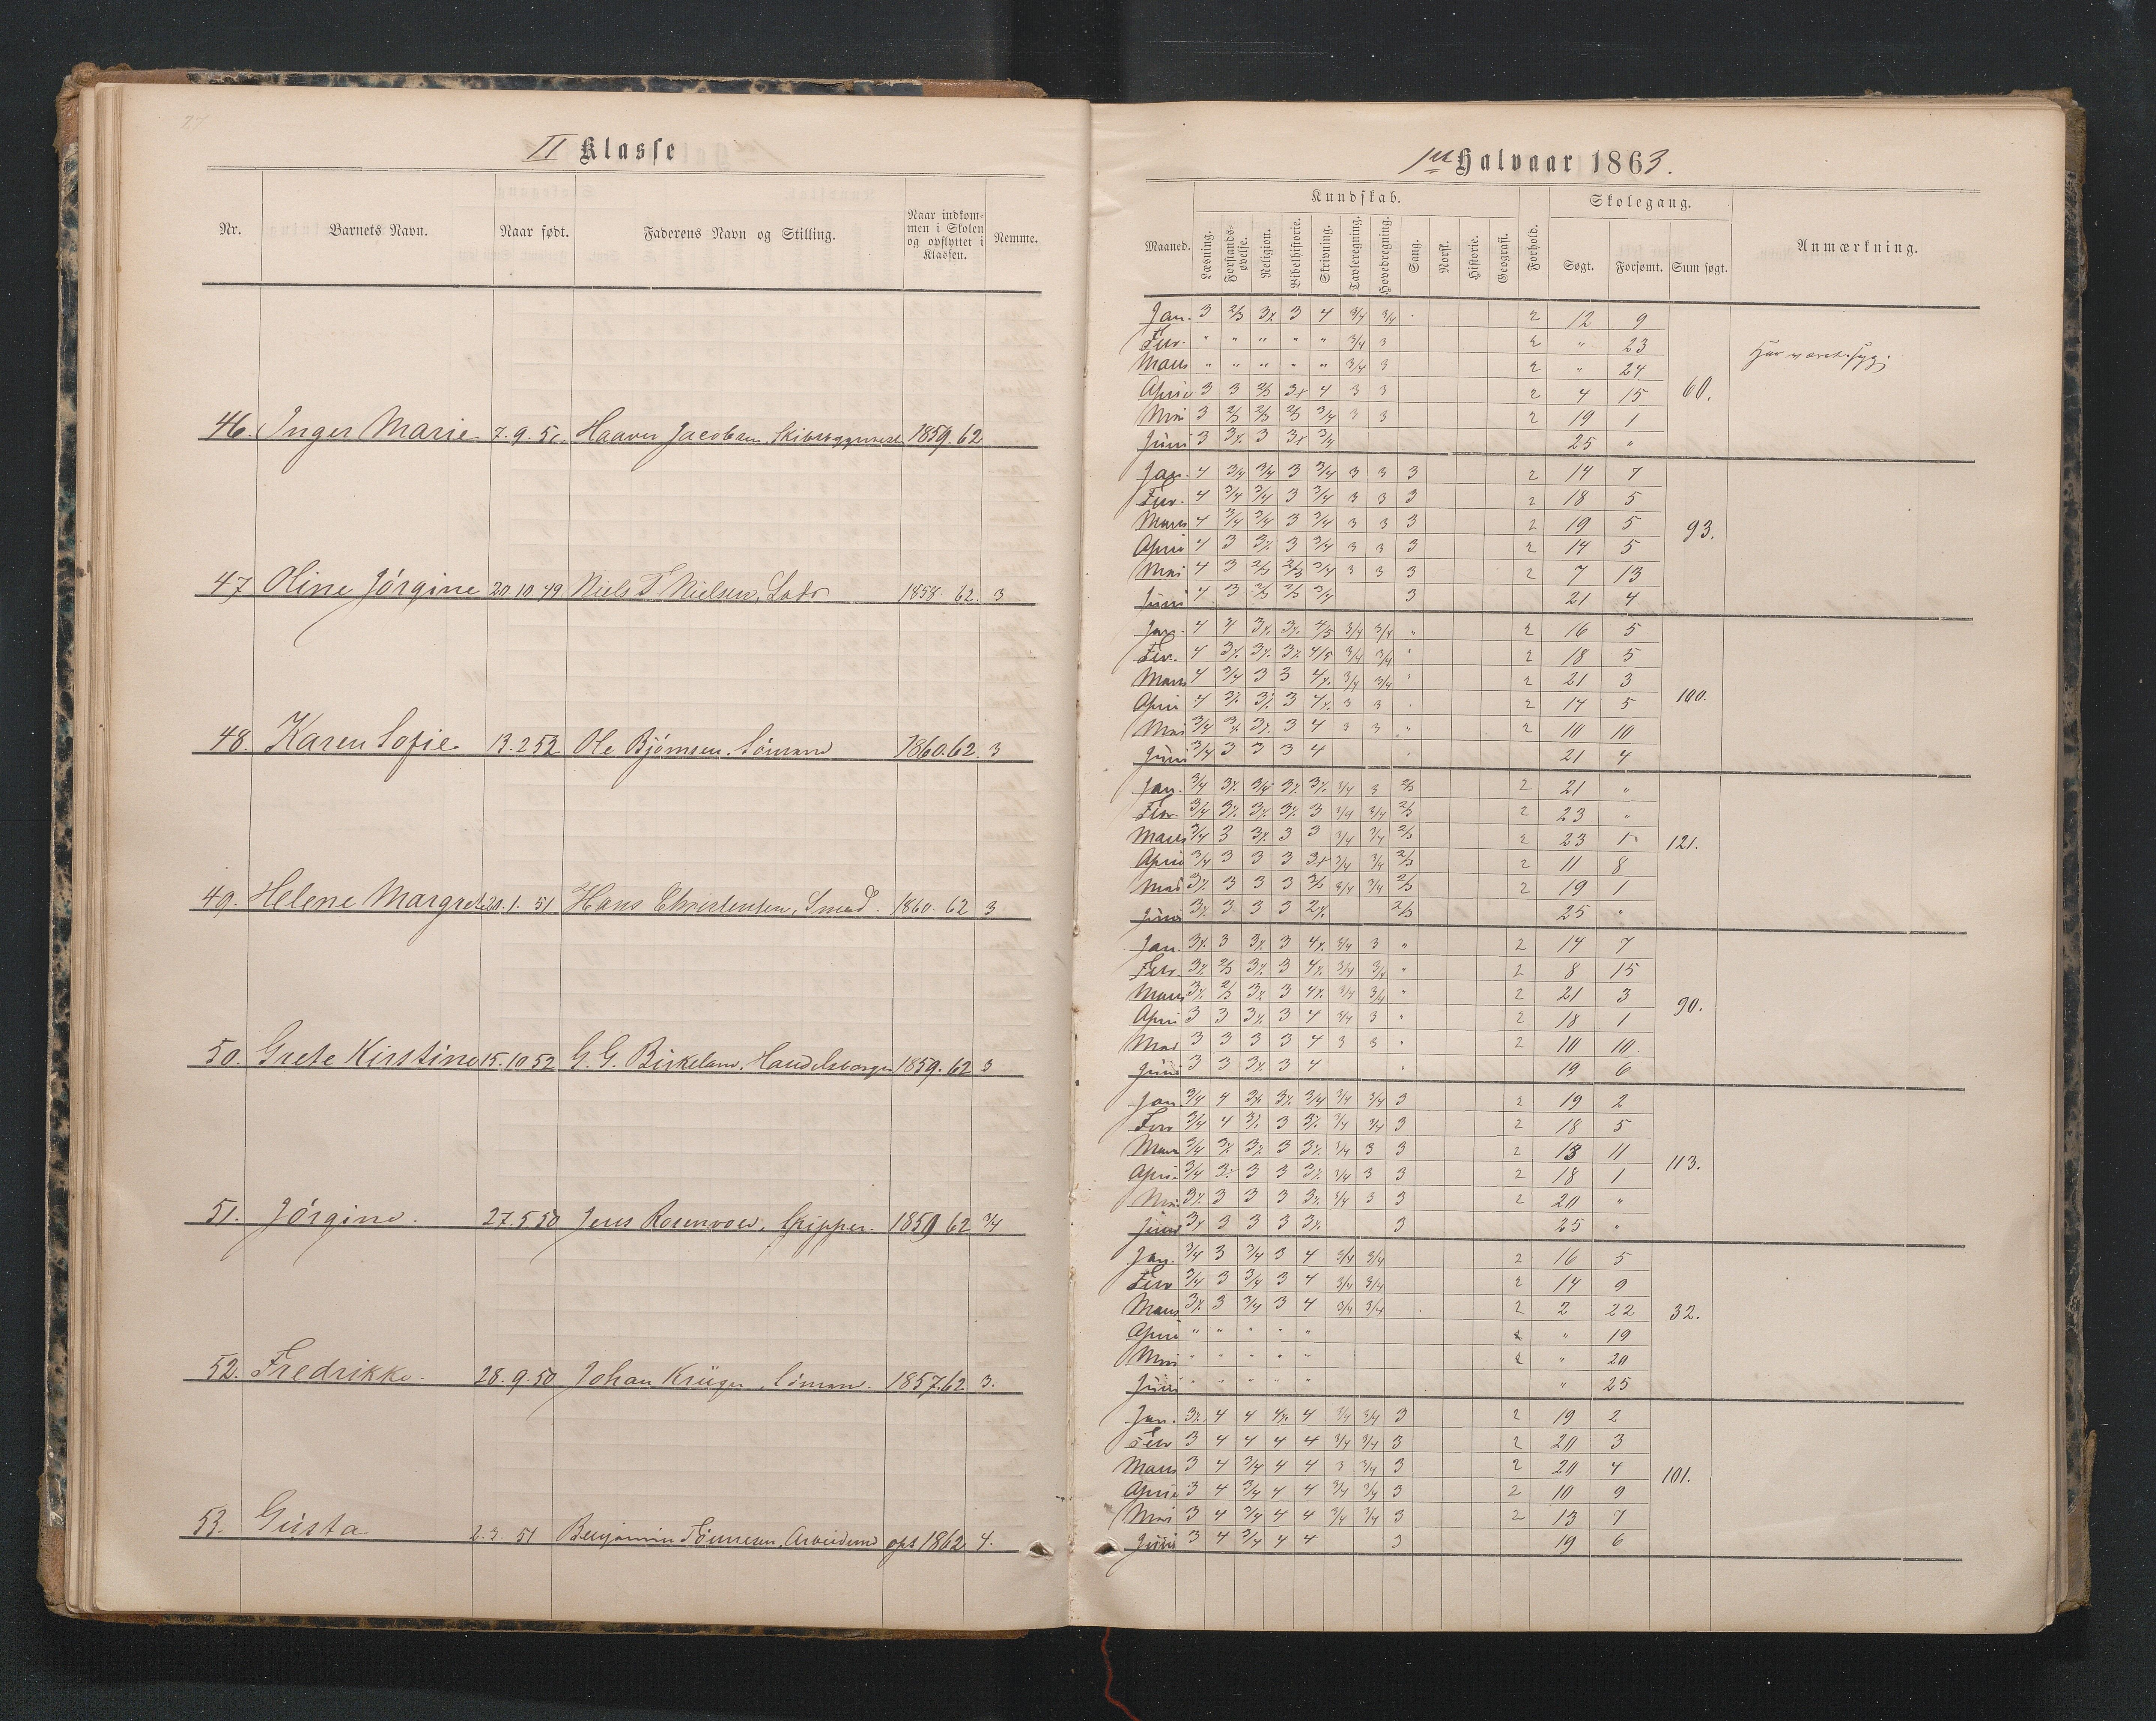 27
II Klasse
Nr. Barnets Navn. Naar født. Faderens Navn og Stilling. Naar indkommen i Skolen og opflyttet i Klassen. Nemme.
46. Inger Marie 7. 9. 51. Haaver Jacobsen, 1859. 62
47 Oline Jórgine 20. 10. 49 Niels T Nielsen, Lods 1858. 62. 3
48. Karen Sofie. 13. 2 52. Ole Bjórnsen, Sómand 1860. 62. 3
49. Helene Margrete 20. 1. 51 Hans Christensen, Smed. 1860. 62 3
50. Grete Kirstine 15. 10 52 G. G. Birkeland, 1859. 62 3
51. Jórgine. 27. 5 50 Jens Rosenvold, Skipper. 1859 62 3/4
52. Fredrikke. 28. 9. 50 Johan Krüger, Sómand. 1857. 62 3.
53. Gusta 2. 3. 51 Benjamin ops 1862. 4.
1ste Halvaar 1863.
Kundskab. Skolegang.
Maaned. Læsning. Forstandsøvelse. Religion. Bibelhistorie. Skrivning. Tavleregning. Hovedregning. Sang. Norsk. Historie. Geografi. Forhold. Søgt. Forsømt. Sum søgt. Anmærkning.
Jan. 3 2/3 3% 3 4 3/4 3/4 2 12 9
Febr. " " " " " 3/4 3 2 " 23 Har været syg.
Marts " " " " " 3/4 3 2 " 24
April 3 3 2/3 3% 4 3 3 2 4 15 60.
Mai 3 2/3 2/3 2/3 3/4 3 3 2 19 1
Juni 3 3% 3 3% 3/4 25 "
Jan. 4 3/4 3/4 3 3/4 3 3 3 2 14 7
Febr. 4 3/4 3/4 3 3/4 3 3 3 2 18 5
Marts 4 3/4 3/4 3 3/4 3 3 3 2 19 5 93.
April 4 3 3% 3 3/4 3 3 3 2 14 5
Mai 4 3 2/3 2/3 3/4 3 3 3 2 7 13
Juni 4 3 2/3 2/3 3/4 3 21 4
Jan. 4 4 3% 3% 4/5 3/4 3/4 " 2 16 5
Febr. 4 3% 3% 3% 4/5 3/4 3/4 " 2 18 5
Marts 4 3/4 3 3 4% 3/4 3/4 " 2 21 3
April 4 3% 3% 3 4% 3 3 2 14 5 100.
Mai 3/4 3% 3% 3 4 3 3 " 2 10 10
Juni 3/4 3 3 3 4 21 4
Jan. 3/4 3% 3/4 3% 3% 3/4 3 2/3 2 21 "
Febr. 3/4 3% 3% 3% 3 3/4 3/4 2/3 2 23 "
Marts 3/4 3 3% 3 3 3/4 3/4 2/3 2 23 1 121.
April 3/4 3 3 3 3% 3/4 3/4 2/3 2 11 8
Mai 3% 3 3 3 2/3 3/4 3/4 2/3 2 19 1
Juni 3% 3 3 3 2% 2/3 25 "
Jan. 3% 3 3% 3 4% 3/4 3 " 2 14 7
Febr. 3% 2/3 3% 3 4% 3/4 3/4 " 2 8 15
Marts 3% 2/3 3% 3 4% 3/4 3/4 " 2 21 3 90.
April 3 3 3% 3 4 3/4 3 " 2 18 1
Mai 3 3 3 3 4 3 3 " 2 10 10
Juni 3 3 3% 3 4 " 19 6
Jan. 3/4 4 3% 3% 3/4 3/4 3/4 3 2 19 2
Febr 3/4 4 3% 3 3% 3/4 3/4 3 2 18 5
Marts 3/4 3% 3% 3 3% 3/4 3 3 2 13 11 113.
April 3/4 3% 3 3 3% 3/4 3 3 2 18 1
Mai 3% 3 3 3 3% 3/4 3 3 2 20 "
Juni 3% 3 3 3 3% 3 25 "
Jan. 3/4 3 3/4 3 4 3/4 3/4 2 16 5
Febr 3/4 3 3/4 3 4 3/4 3/4 2 14 9
Marts 3% 3 3/4 3 4 3/4 3/4 2 2 22 32.
April " " " " " 2 " 19
Mai " " " " " 2 " 20
Juni " " " " " " 25
Jan. 3% 4 4 4% 4 3/4 3/4 3 2 19 2
Febr 3 4 4 4 4 3/4 3/4 3 2 20 3
Marts 3 4 3/4 4 4 3 3/4 3 2 20 4 101.
April 3 4 3/4 4 4 3/4 3/4 3 2 10 9
Mai 3 4 3/4 4 4 3/4 3/4 3 2 13 7
Juni 3 4 3/4 4 4 3 19 6